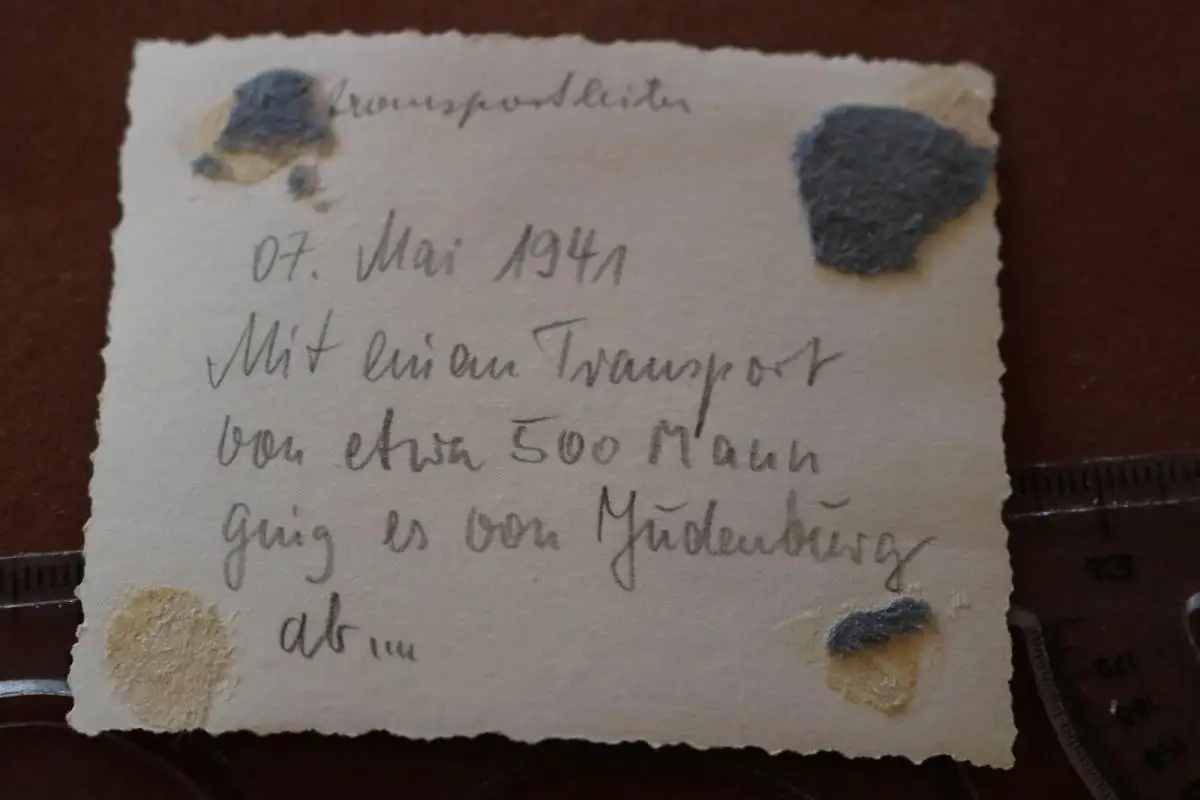 Transportleiter
07. Mai 1941
Mit einem Transport
von etwa 500 Mann
ging es von Judenburg
ab....